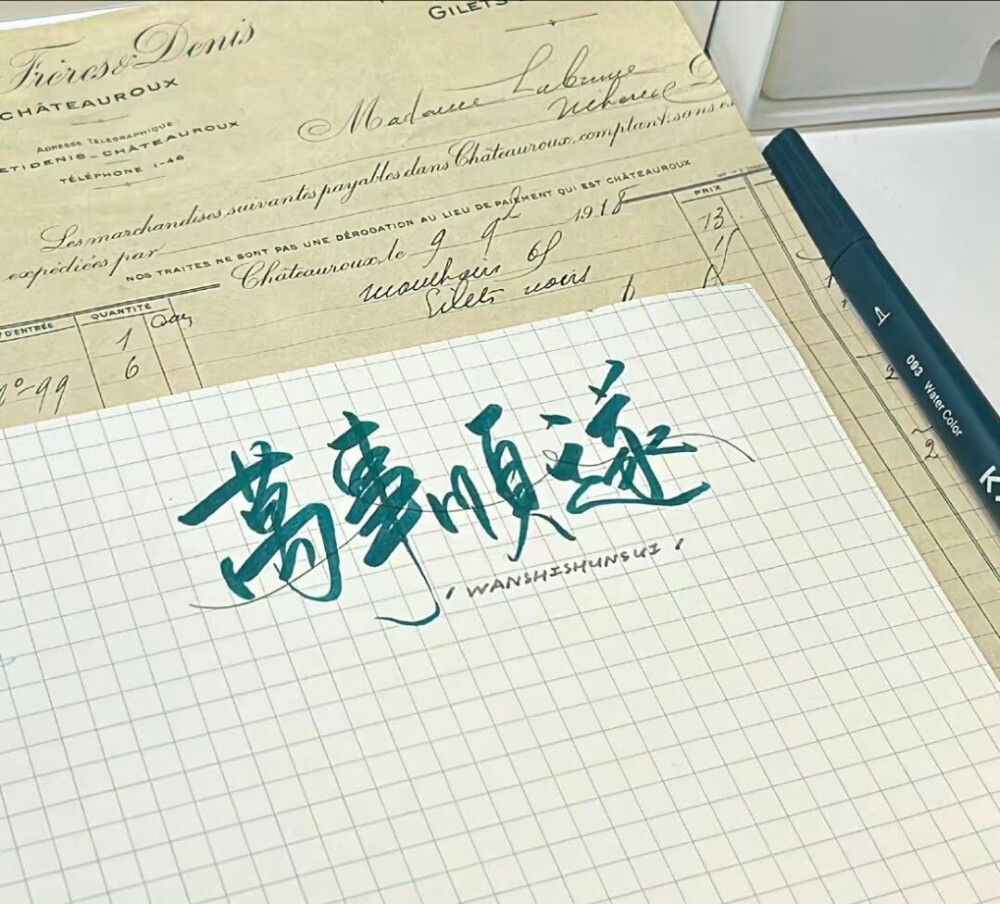 GILETS
Frères & Denis
CHÂTEAUROUX
ADRESSE TÉLÉGRAPHIQUE
ETIDENIS-CHÂTEAUROUX
TÉLÉPHONE 1-46
Madame
Les marchandises suivantes payables dans Châteauroux, comptant, sans
expédiées par
NOS TRAITES NE SONT PAS UNE DÉROGATION AU LIEU DE PAIEMENT QUI EST CHÂTEAUROUX
Châteauroux, le 9 9 1918
D'ENTRÉE
QUANTITÉ
PRIX
13
1
Gilets noirs
6
萬事順遂
WANSHISHUNSUI
093 Water Color